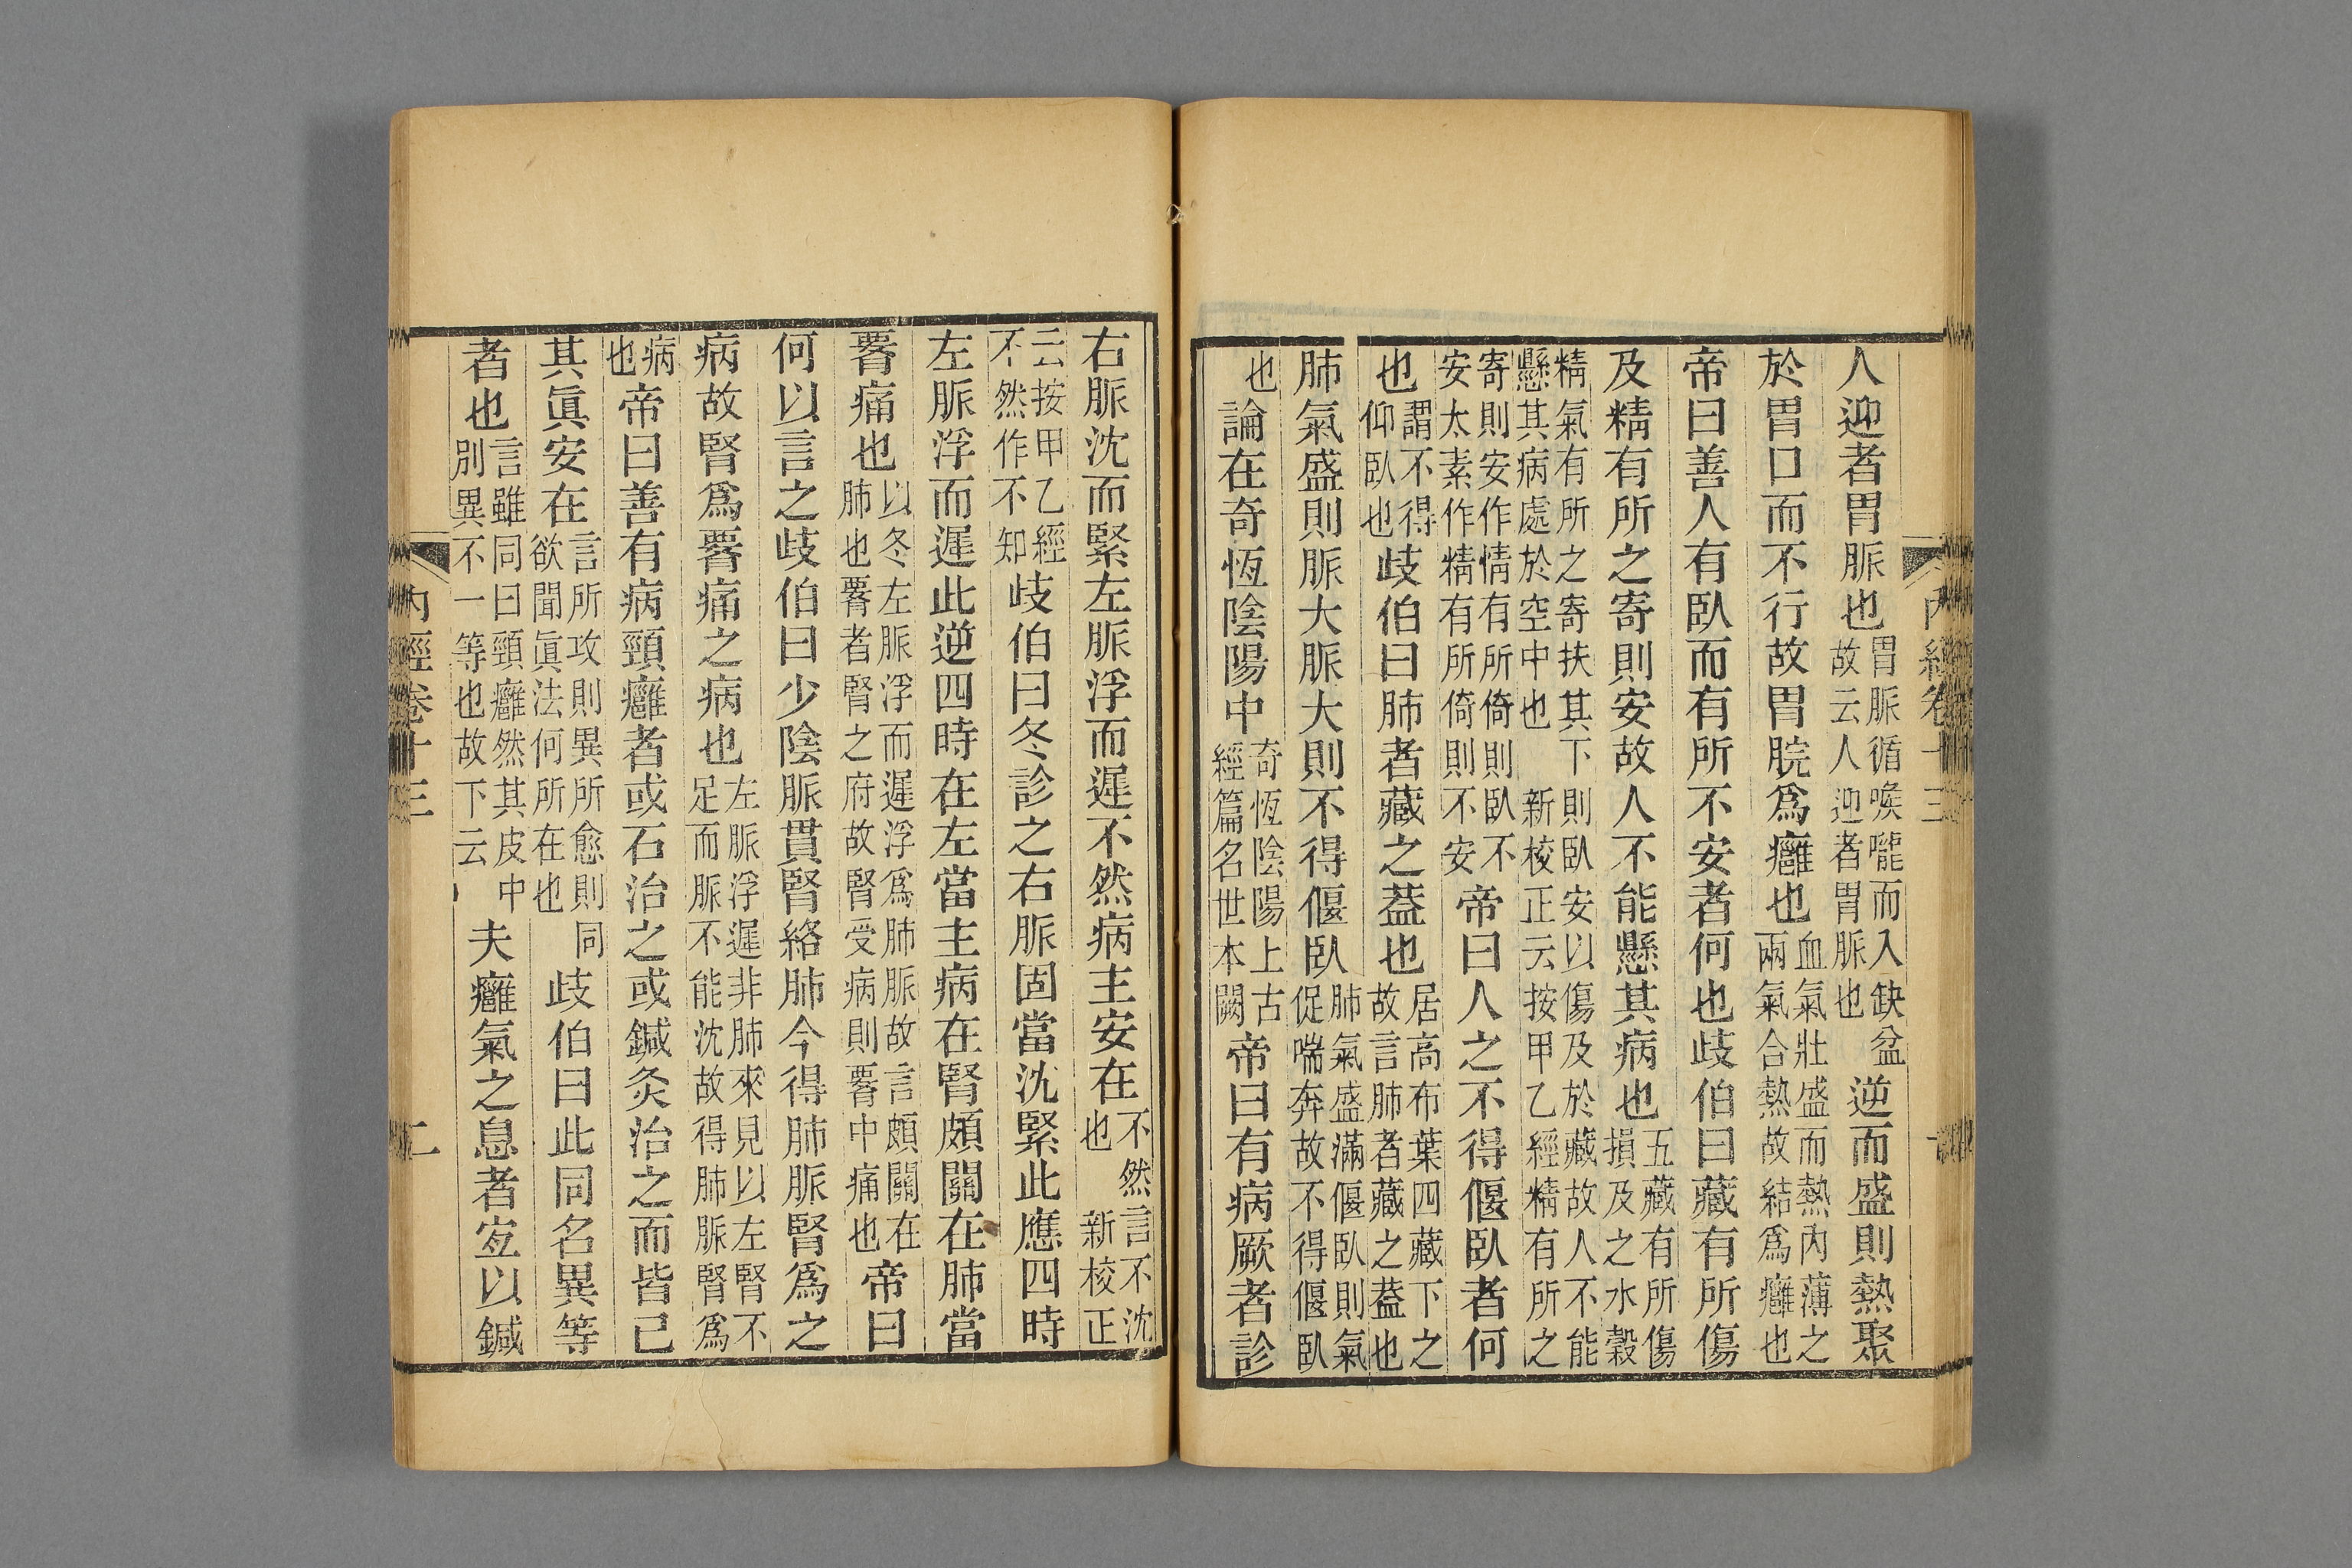 內經卷十三
一
人迎者胃脈也胃脈循喉嚨而入缺盆故云人迎者胃脈也逆而盛則熱聚
於胃口而不行故胃脘爲癰也血氣壯盛而熱內薄之兩氣合熱故結爲癰也
帝曰善人有臥而有所不安者何也歧伯曰藏有所傷
及精有所之寄則安故人不能懸其病也五藏有所傷損及之水穀
精氣有所之寄扶其下則臥安以傷及於藏故人不能懸其病處於空中也 新校正云按甲乙經精有所之
寄則安作情有所倚則臥不安太素作精有所倚則不安帝曰人之不得偃臥者何
也謂不得仰臥也歧伯曰肺者藏之葢也居高布葉四藏下之故言肺者藏之葢也
肺氣盛則脈大脈大則不得偃臥肺氣盛滿偃臥則氣促喘奔故不得偃臥
也論在奇恆陰陽中奇恆陰陽上古經篇名世本闕帝曰有病厥者診
右脈沈而緊左脈浮而遲不然病主安在不然言不沈也 新校正
云按甲乙經不然作不知歧伯曰冬診之右脈固當沈緊此應四時
左脈浮而遲此逆四時在左當主病在腎頗關在肺當
䏿痛也以冬左脈浮而遲浮爲肺脈故言頗關在肺也䏿者腎之府故腎受病則䏿中痛也帝曰
何以言之歧伯曰少陰脈貫腎絡肺今得肺脈腎爲之
病故腎爲䏿痛之病也左脈浮遲非肺來見以左腎不足而脈不能沈故得肺脈腎爲
病也帝曰善有病頸癰者或石治之或鍼灸治之而皆已
其眞安在言所攻則異所愈則同欲聞眞法何所在也歧伯曰此同名異等
者也言雖同曰頸癰然其皮中別異不一等也故下云夫癰氣之息者宜以鍼
內經卷十三
二